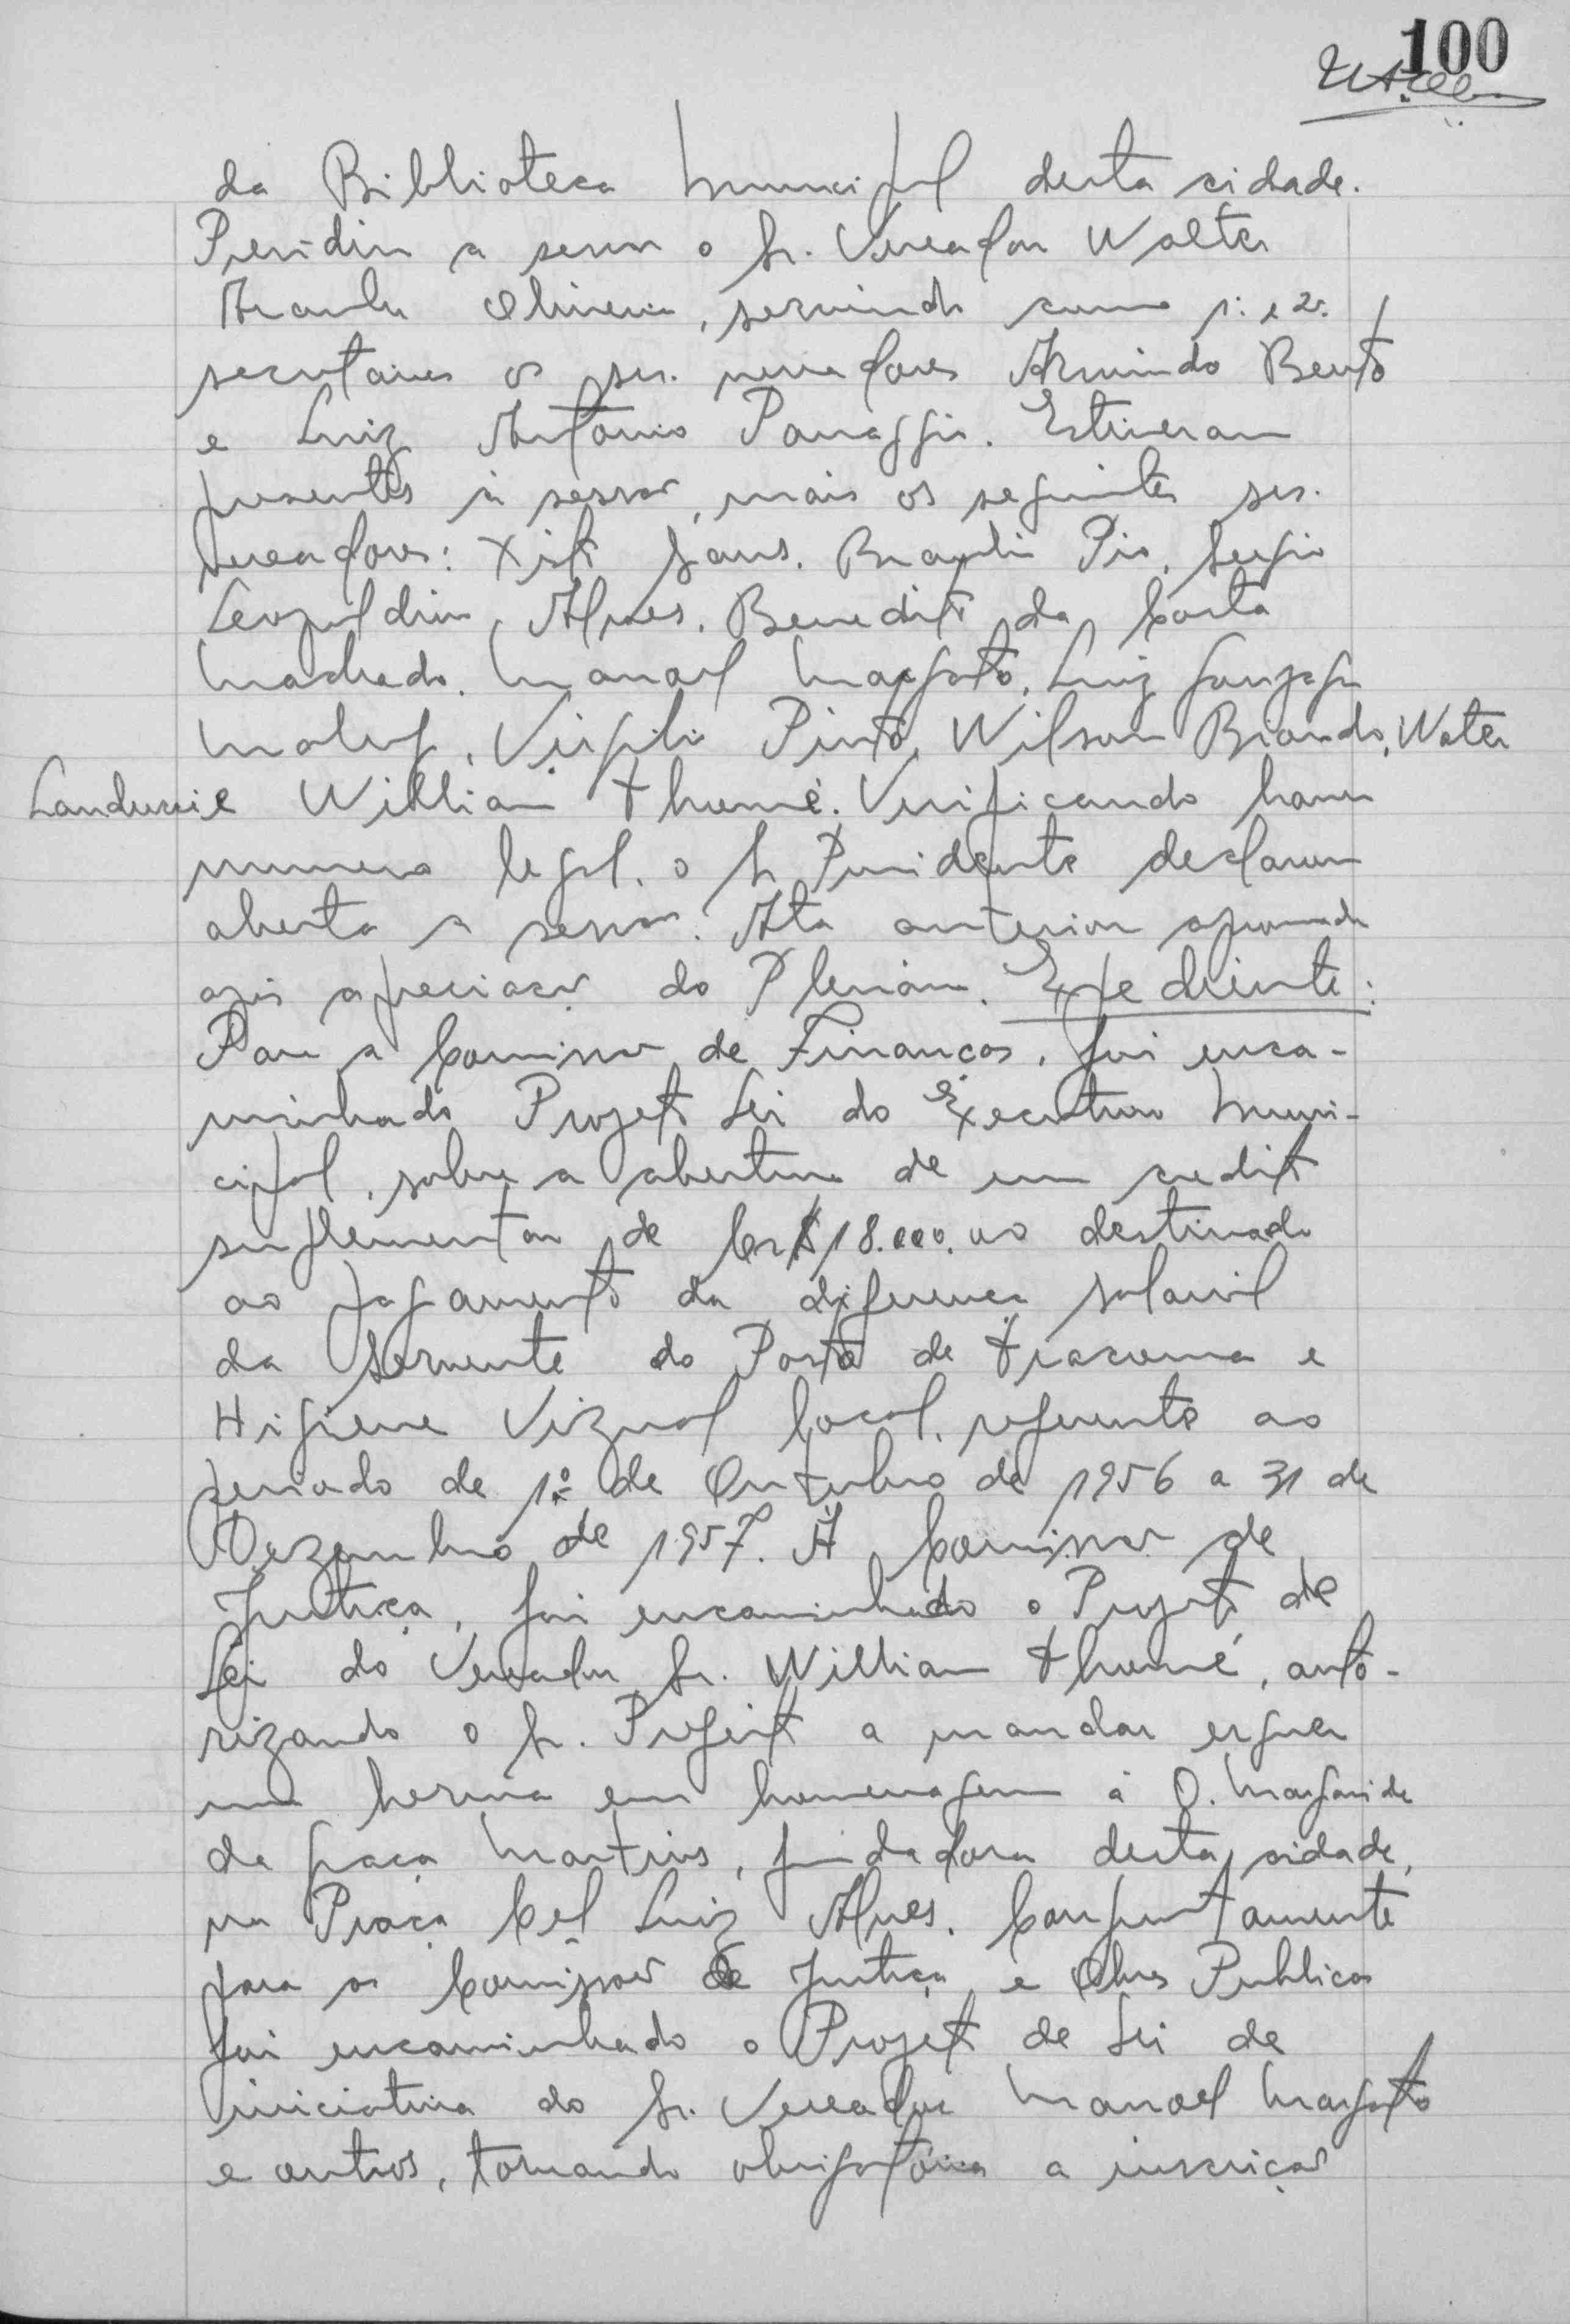 100
da Biblioteca Municipal desta cidade.
Presidiu a sessão o Sr. Vereador Walter
Aranha Oliveira, servindo como 1º e 2º
secretarios os srs. vereadores Armindo Bento
e Luiz Antônio Panaggio. Estiveram
presentes à sessão, mais os seguintes srs.
Vereadores: Xisto Pio, Sergio
Leopoldino Alves, Benedito da Costa
Machado, Manoel Margato, Luiz Gonzaga
Maluf, Virgilio Pinto, Wilson Brando, Water
Landucci e Willian Thumé. Verificando haver
numero legal, o Sr Presidente declarou
aberta a sessão. Ata anterior aprovada
após apreciação do Plenário. Expediente:
Para a Comissão de Finanças, foi enca-
minhado Projeto Lei do Executivo Muni-
cipal, sobre a abertura de um credito
suplementar de Cr$ 18.000,00 destinado
ao pagamento da diferença salarial
da Servente do Posto de Tracoma e
Higiene Vizual local, referente ao
periodo de 1º de Outubro de 1956 a 31 de
Dezembro de 1957. À Comissão de
Justiça, foi encaminhado o Projeto de
Lei do Vereador Sr. Willian Thumé, auto-
rizando o Sr. Prefeito a mandar erguer
uma herma em homenagem à D. Margarida
da Graça Martins, fundadora desta cidade,
na Praça Cel Luiz Alves. Conjuntamente
para as Comissões de Justiça e Obras Publicas
foi encaminhado o Projeto de Lei de
iniciativa do Sr. Vereador Manoel Margato
e outros, tornando obrigatória a inscrição